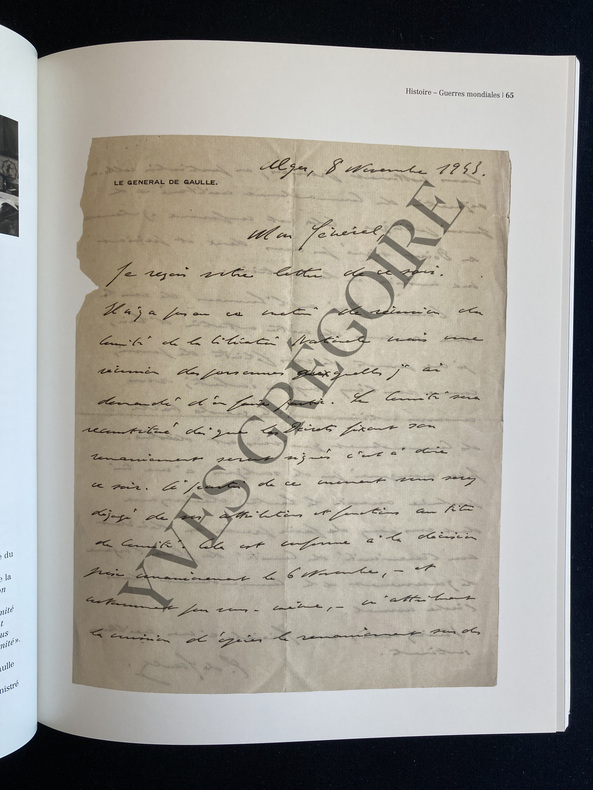 Histoire – Guerres mondiales | 65
LE GENERAL DE GAULLE.
Alger, 8 Novembre 1943.
Mon Général,
Je reçois votre lettre de ce soir.
Il n'y a pas eu ce matin de réunion du
Comité de la Libération Nationale mais une
réunion des personnes auxquelles j'ai
demandé d'en faire partie. Le Comité sera
reconstitué dès que les Décrets fixant son
remaniement seront signés c'est à dire
ce soir. A partir de ce moment vous serez
dégagé de vos attributions et fonctions au titre
du Comité. Cela est conforme à la décision
prise unanimement le 6 Novembre, – et
notamment par vous-même, – m'attribuant
la mission d'opérer le remaniement sur des
YVES GREGOIRE
e du
e la
on
mité
t
us
nité ».
aulle
nistré